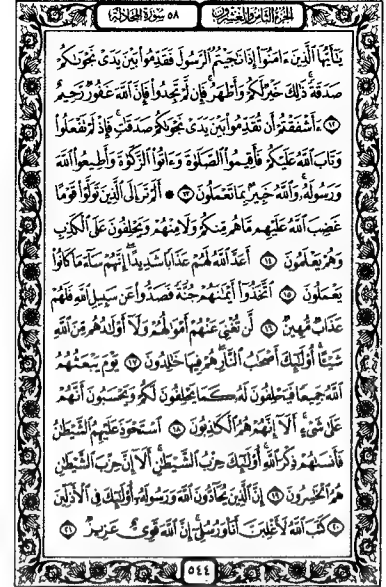 الجزء الثامن والعشرون
٥٨ سورة المجادلة
يَٰٓأَيُّهَا ٱلَّذِينَ ءَامَنُوٓا۟ إِذَا نَٰجَيْتُمُ ٱلرَّسُولَ فَقَدِّمُوا۟ بَيْنَ يَدَىْ نَجْوَىٰكُمْ
صَدَقَةً ذَٰلِكَ خَيْرٌ لَّكُمْ وَأَطْهَرُ فَإِن لَّمْ تَجِدُوا۟ فَإِنَّ ٱللَّهَ غَفُورٌ رَّحِيمٌ
١٢ ءَأَشْفَقْتُمْ أَن تُقَدِّمُوا۟ بَيْنَ يَدَىْ نَجْوَىٰكُمْ صَدَقَٰتٍ فَإِذْ لَمْ تَفْعَلُوا۟
وَتَابَ ٱللَّهُ عَلَيْكُمْ فَأَقِيمُوا۟ ٱلصَّلَوٰةَ وَءَاتُوا۟ ٱلزَّكَوٰةَ وَأَطِيعُوا۟ ٱللَّهَ
وَرَسُولَهُۥ وَٱللَّهُ خَبِيرٌۢ بِمَا تَعْمَلُونَ ١٣ * أَلَمْ تَرَ إِلَى ٱلَّذِينَ تَوَلَّوْا۟ قَوْمًا
غَضِبَ ٱللَّهُ عَلَيْهِم مَّا هُم مِّنكُمْ وَلَا مِنْهُمْ وَيَحْلِفُونَ عَلَى ٱلْكَذِبِ
وَهُمْ يَعْلَمُونَ ١٤ أَعَدَّ ٱللَّهُ لَهُمْ عَذَابًا شَدِيدًا إِنَّهُمْ سَآءَ مَا كَانُوا۟
يَعْمَلُونَ ١٥ ٱتَّخَذُوٓا۟ أَيْمَٰنَهُمْ جُنَّةً فَصَدُّوا۟ عَن سَبِيلِ ٱللَّهِ فَلَهُمْ
عَذَابٌ مُّهِينٌ ١٦ لَّن تُغْنِىَ عَنْهُمْ أَمْوَٰلُهُمْ وَلَآ أَوْلَٰدُهُم مِّنَ ٱللَّهِ
شَيْـًٔا أُو۟لَٰٓئِكَ أَصْحَٰبُ ٱلنَّارِ هُمْ فِيهَا خَٰلِدُونَ ١٧ يَوْمَ يَبْعَثُهُمُ
ٱللَّهُ جَمِيعًا فَيَحْلِفُونَ لَهُۥ كَمَا يَحْلِفُونَ لَكُمْ وَيَحْسَبُونَ أَنَّهُمْ
عَلَىٰ شَىْءٍ أَلَآ إِنَّهُمْ هُمُ ٱلْكَٰذِبُونَ ١٨ ٱسْتَحْوَذَ عَلَيْهِمُ ٱلشَّيْطَٰنُ
فَأَنسَىٰهُمْ ذِكْرَ ٱللَّهِ أُو۟لَٰٓئِكَ حِزْبُ ٱلشَّيْطَٰنِ أَلَآ إِنَّ حِزْبَ ٱلشَّيْطَٰنِ
هُمُ ٱلْخَٰسِرُونَ ١٩ إِنَّ ٱلَّذِينَ يُحَآدُّونَ ٱللَّهَ وَرَسُولَهُۥٓ أُو۟لَٰٓئِكَ فِى ٱلْأَذَلِّينَ
٢٠ كَتَبَ ٱللَّهُ لَأَغْلِبَنَّ أَنَا۠ وَرُسُلِىٓ إِنَّ ٱللَّهَ قَوِىٌّ عَزِيزٌ ٢١
٥٤٤